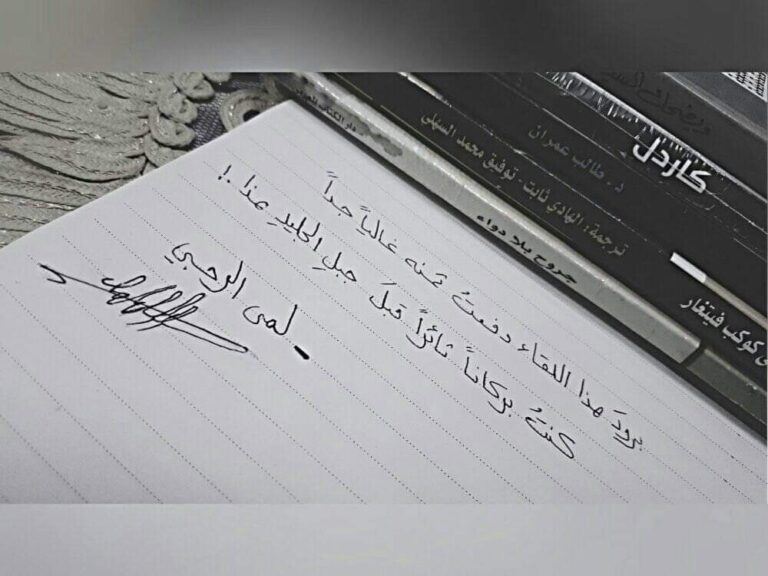 برودَ هذا اللقاء دفعتُ ثمنه غالياً جداً
كنتُ بركاناً ثائراً قبلَ جبلِ الجليدِ هذا .!
- لمى الرحبي
جروح بلا دواء
دار الكتاب
ترجمة: الهادي ثابت - توفيق محمد السهلي
د. طالب عمران
كاردل
كوكب فيتغار